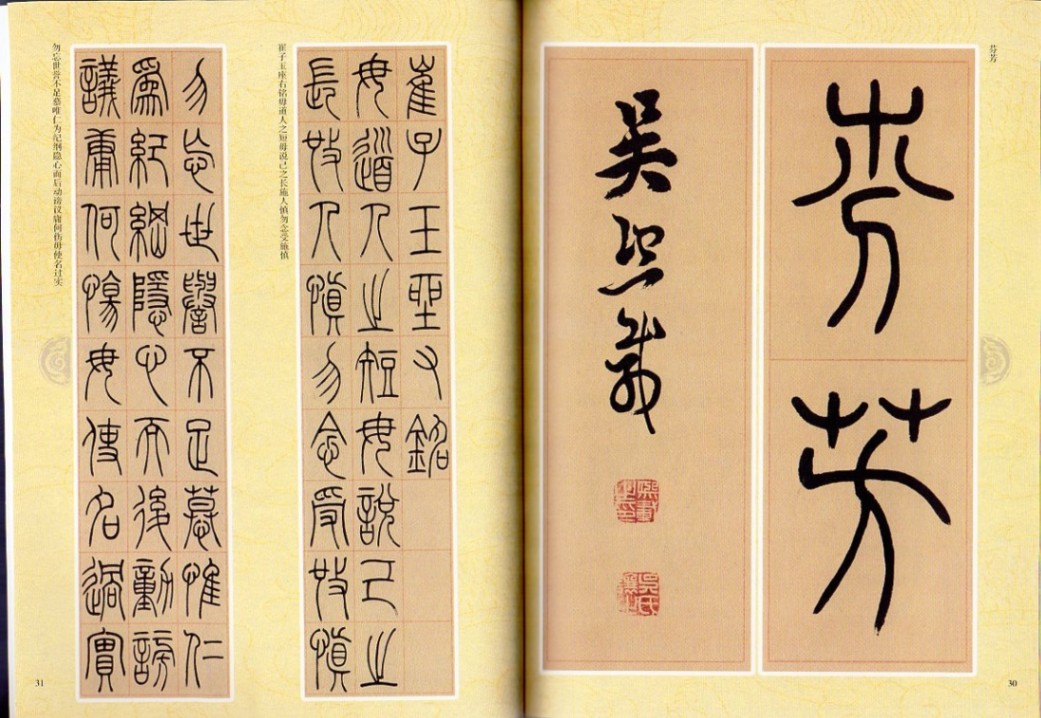 芬芳
芬芳
吳熙載
熙載之印
吳氏讓之
30
崔子玉座右铭毋道人之短毋说己之长施人慎勿念受施慎
崔子玉座右銘
毋道人之短毋說己之
長施人慎勿念受施慎
勿忘世譽不足慕惟仁
為紀綱隱心而後動謗
議庸何傷毋使名過實
勿忘世誉不足慕唯仁为纪纲隐心而后动谤议庸何伤毋使名过实
31